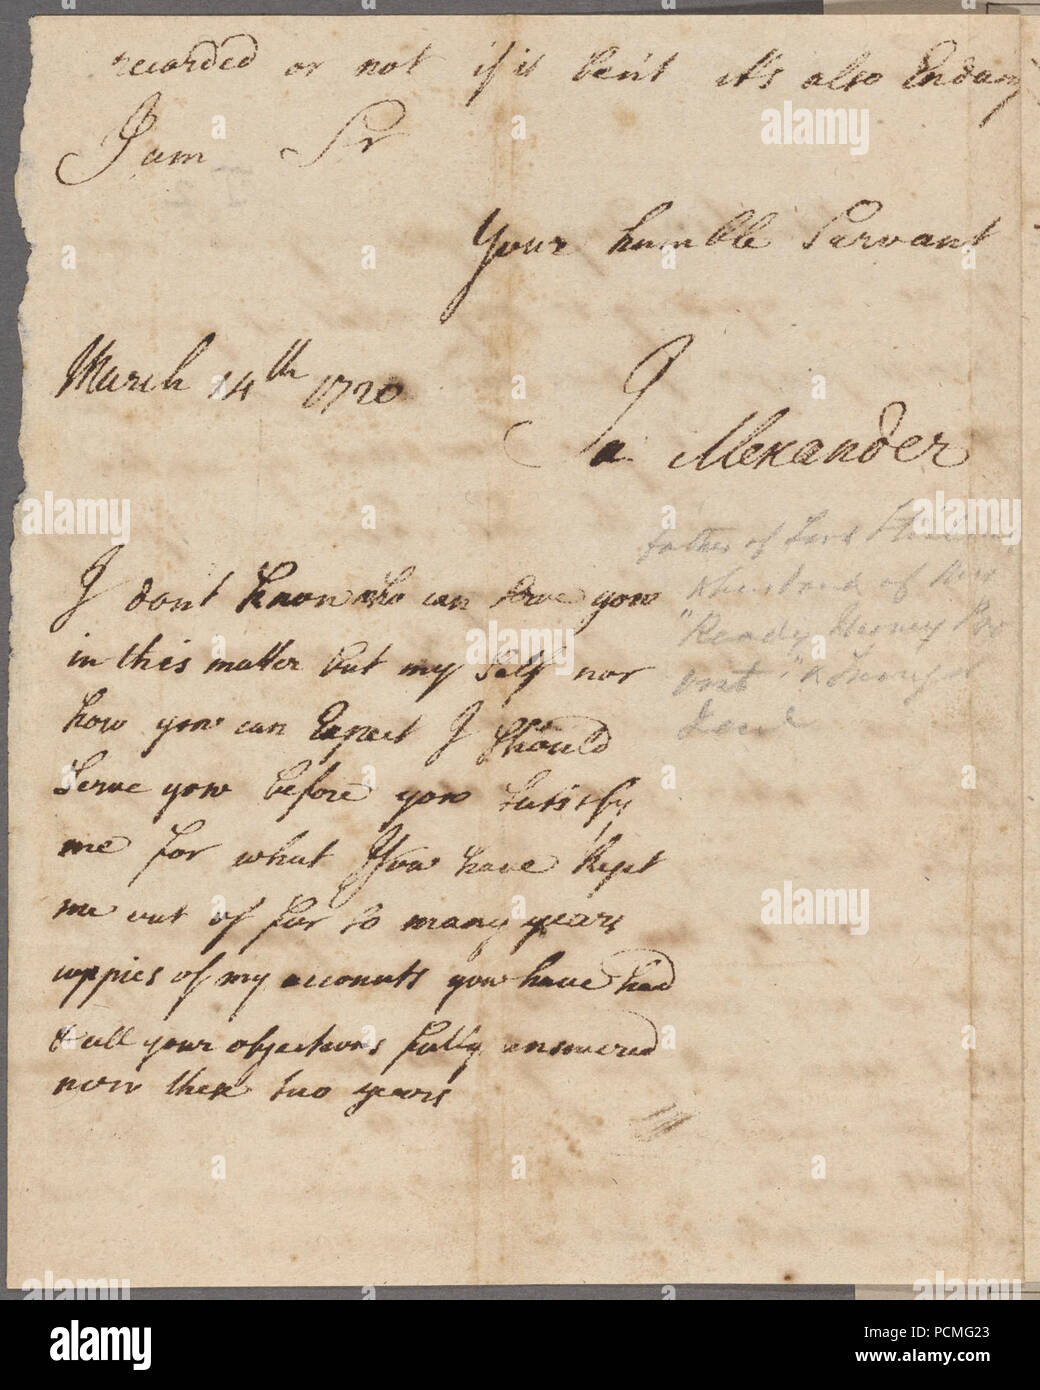 recorded or not if it ben't it's also Endang
I am Sr
Your humble Servant
March 14th 1720
Ja Alexander
father of Lord
& husband of
"Ready Money Pro
I dont know who can serve yow
in this matter but my Self nor
how yow can Expect I Should
Serve yow before yow Satisfy
me for what Yow have kept
me out of for so many years
coppies of my accounts yow have had
& all your objections fully answered
now these two years
alamy
alamy stock photo
PCMG23
www.alamy.com